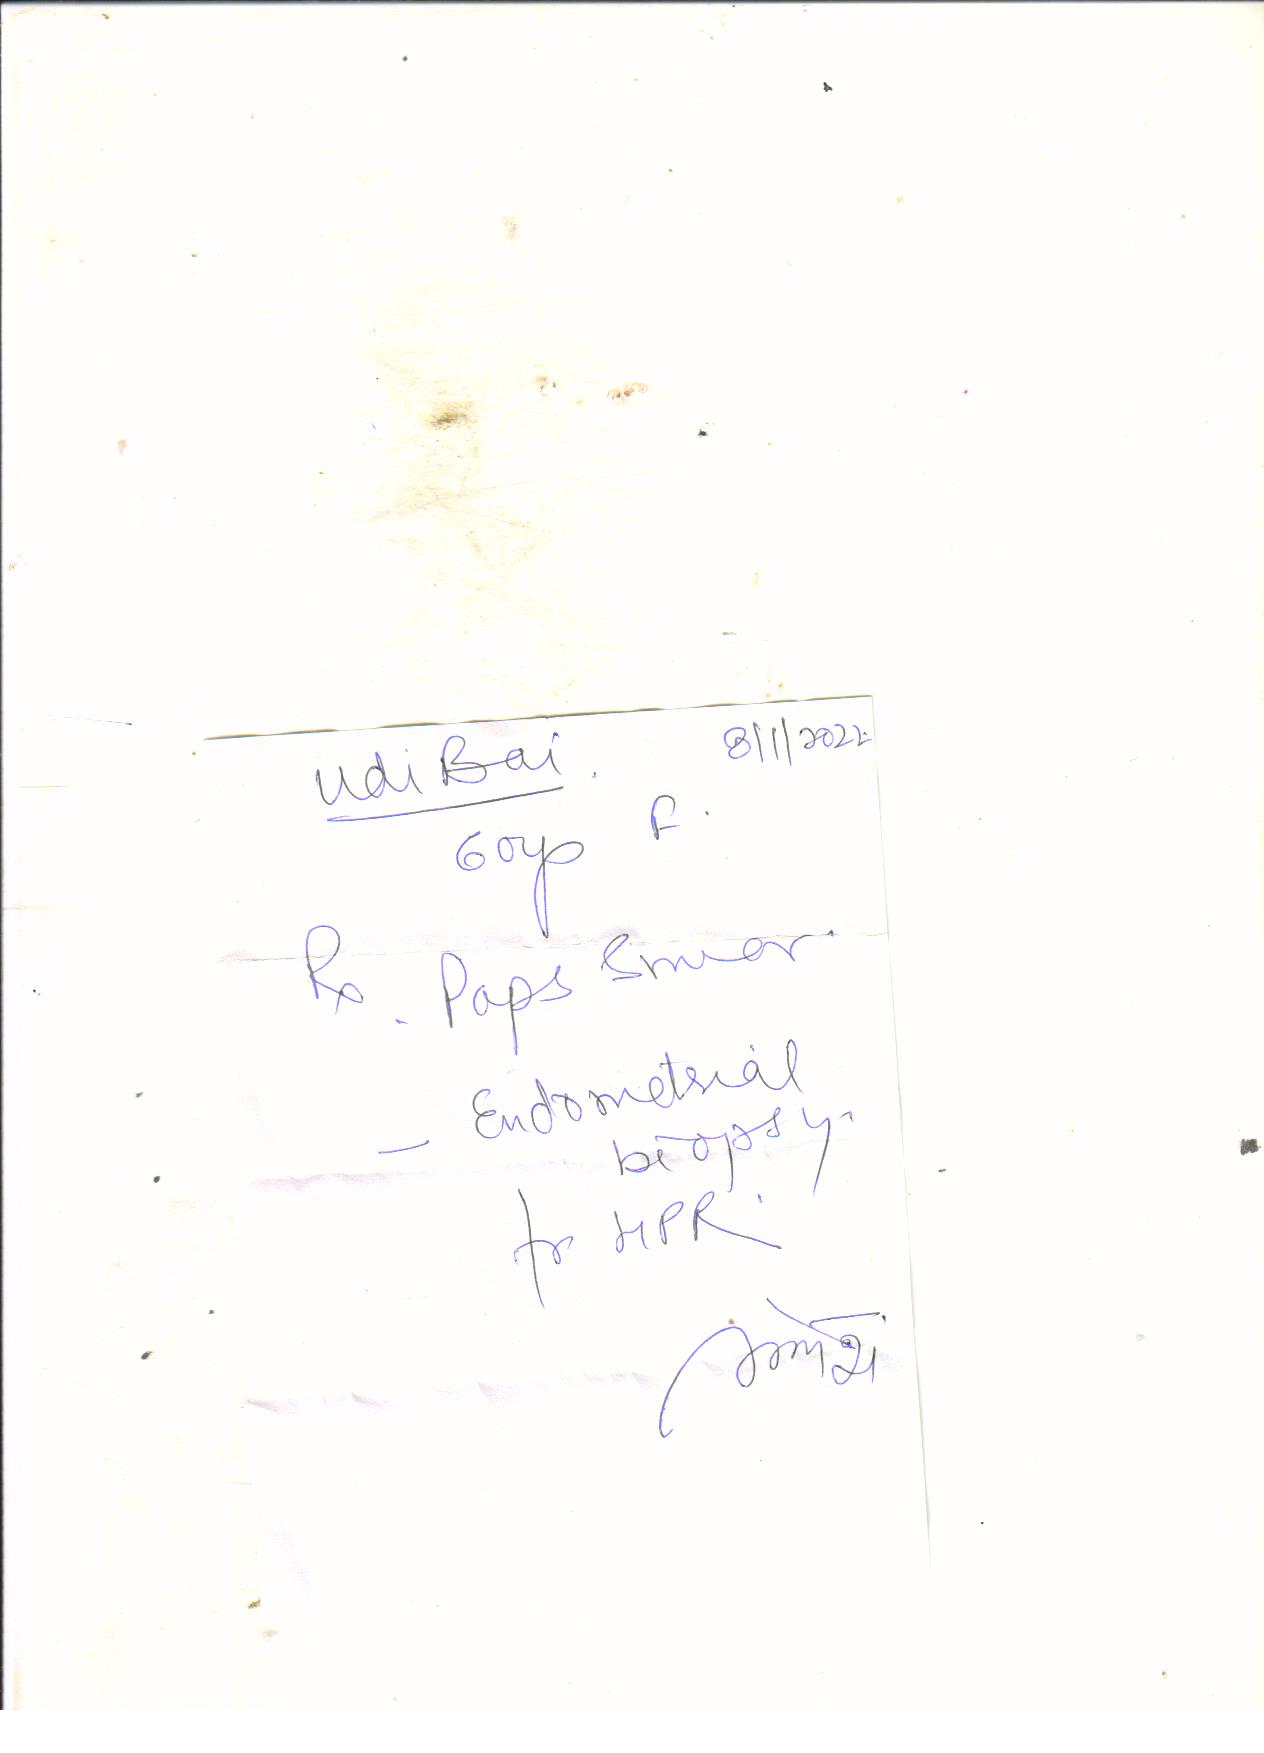 Udi Bai. 8/1/2022
60yr F.
Rx. Paps Smear.
- Endometrial
biopsy.
for HPR.